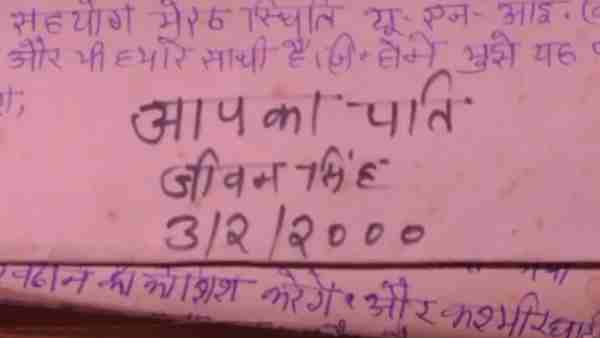 सहयोग मेरठ स्थिति यू-एन-आइ.
और भी हमारे साथी है जिन्होंने मुझे यह
आपका पति
जीवन सिंह
3/2/2000
की कोशिश करेंगे और कश्मीर